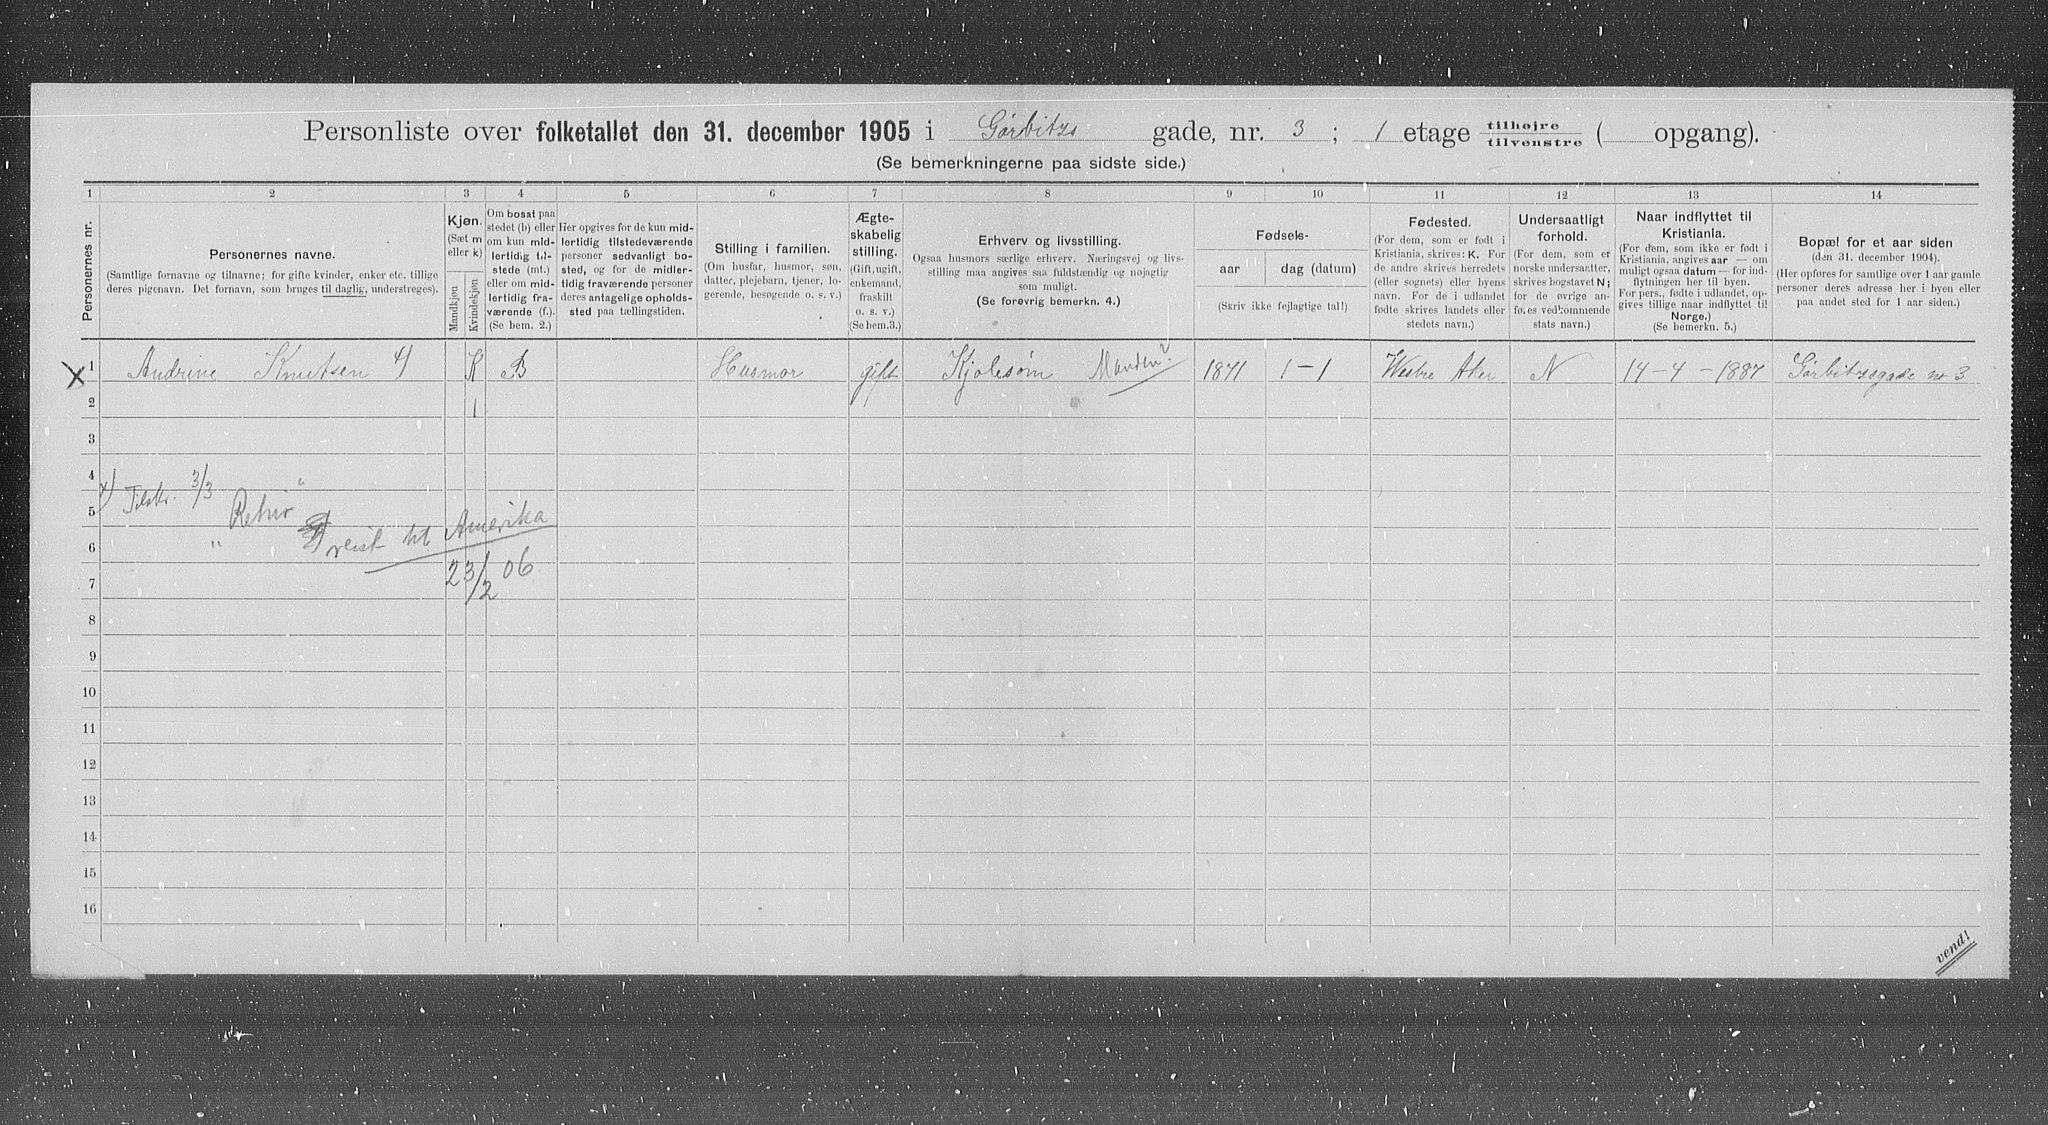 Personliste over folketallet den 31. december 1905 i Gørbitz gade, nr. 3 ; 1 etage tilhøjre tilvenstre ( opgang).
(Se bemerkningerne paa sidste side.)
1 2 3 4 5 6 7 8 9 10 11 12 13 14
Personernes nr.
Personernes navne.
(Samtlige fornavne og tilnavne; for gifte kvinder, enker etc. tillige
deres pigenavn. Det fornavn, som bruges til daglig, understreges).
Kjøn.
(Sæt m
eller k)
Mandkjøn
Kvindekjøn
Om bosat paa
stedet (b) eller
om kun mid-
lertidig til-
stede (mt.)
eller om mid-
lertidig fra-
værende (f.).
(Se bem. 2.)
Her opgives for de kun mid-
lertidig tilstedeværende
personer sedvanligt bo-
sted, og for de midler-
tidig fraværende personer
deres antagelige opholds-
sted paa tællingstiden.
Stilling i familien.
(Om husfar, husmor, søn,
datter, plejebarn, tjener, lo-
gerende, besøgende o. s. v.)
Ægte-
skabelig
stilling.
(Gift, ugift,
enkemand,
fraskilt
o. s. v.)
(Se bem.3.)
Erhverv og livsstilling.
Ogsaa husmors særlige erhverv. Næringsvej og livs-
stilling maa angives saa fuldstændig og nøjagtig
som muligt.
(Se forøvrig bemerkn. 4.)
Fødsels-
aar
dag (datum)
(Skriv ikke fejlagtige tal!)
Fødested.
(For dem, som er født i
Kristiania, skrives: K. For
de andre skrives herredets
(eller sognets) eller byens
navn. For de i udlandet
fødte skrives landets eller
stedets navn.)
Undersaatligt
forhold.
(For dem, som er
norske undersaatter,
skrives bogstavet N;
for de øvrige an-
føres vedkommende
stats navn.)
Naar indflyttet til
Kristiania.
(For dem, som ikke er født i
Kristiania, angives aar — om
muligt ogsaa datum — for ind-
flytningen her til byen.
For pers., fødte i udlandet, op-
gives tillige naar indflyttet til
Norge.)
(Se bemerkn. 5.)
Bopæl for et aar siden
(den 31. december 1904).
(Her opføres for samtlige over 1 aar gamle
personer deres adresse her i byen eller
paa andet sted for 1 aar siden.)
X 1 Andrine Knutsen K B Husmor gift Kjolesøm Manden? 1871 1-1 Westre Aker N 14-4-1887 Gørbitzgade no 3
2 1
3
4
x) Tilskr. 3/3
5 " Retur "
6 reist til Amerika
7 23/2 06
8
9
10
11
12
13
14
15
16
vend!